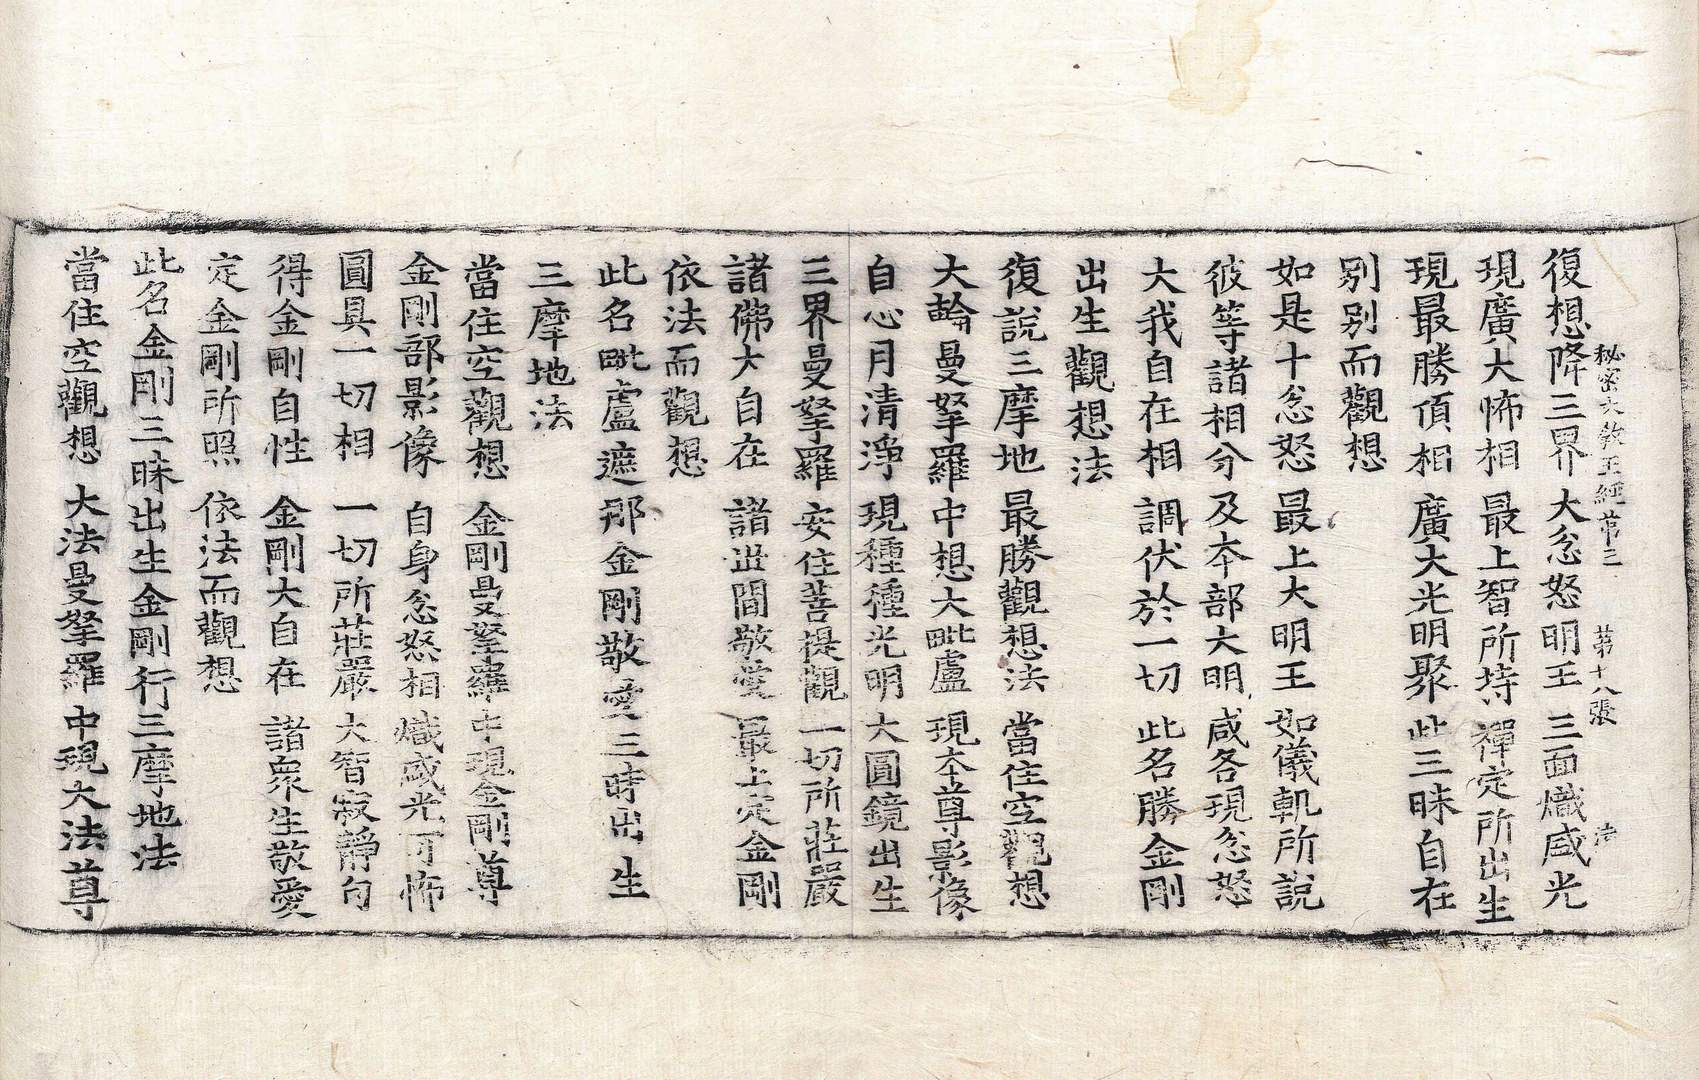 秘密大教王經第三 第十八張 法
復想降三界 大忿怒明王 三面熾盛光
現廣大怖相 最上智所持 禪定所出生
現最勝頂相 廣大光明聚 此三昧自在
别别而觀想
如是十忿怒 最上大明王 如儀軌所說
彼等諸相分 及夲部大明 咸各現忿怒
大我自在相 調伏於一切 此名勝金剛
出生觀想法
復說三摩地 最勝觀想法 當住空觀想
大輪曼拏羅 中想大毗盧 現夲尊影像
自心月清淨 現種種光明 大圓鏡出生
三界曼拏羅 安住菩提觀 一切所莊嚴
諸佛大自在 諸世間敬愛 最上定金剛
依法而觀想
此名毗盧遮那金剛敬愛三時出生
三摩地法
當住空觀想 金剛曼拏羅 中現金剛尊
金剛部影像 自身忿怒相 熾盛光可怖
圓具一切相 一切所莊嚴 大智寂靜句
得金剛自性 金剛大自在 諸衆生敬愛
定金剛所照 依法而觀想
此名金剛三昧出生金剛行三摩地法
當住空觀想 大法曼拏羅 中現大法尊